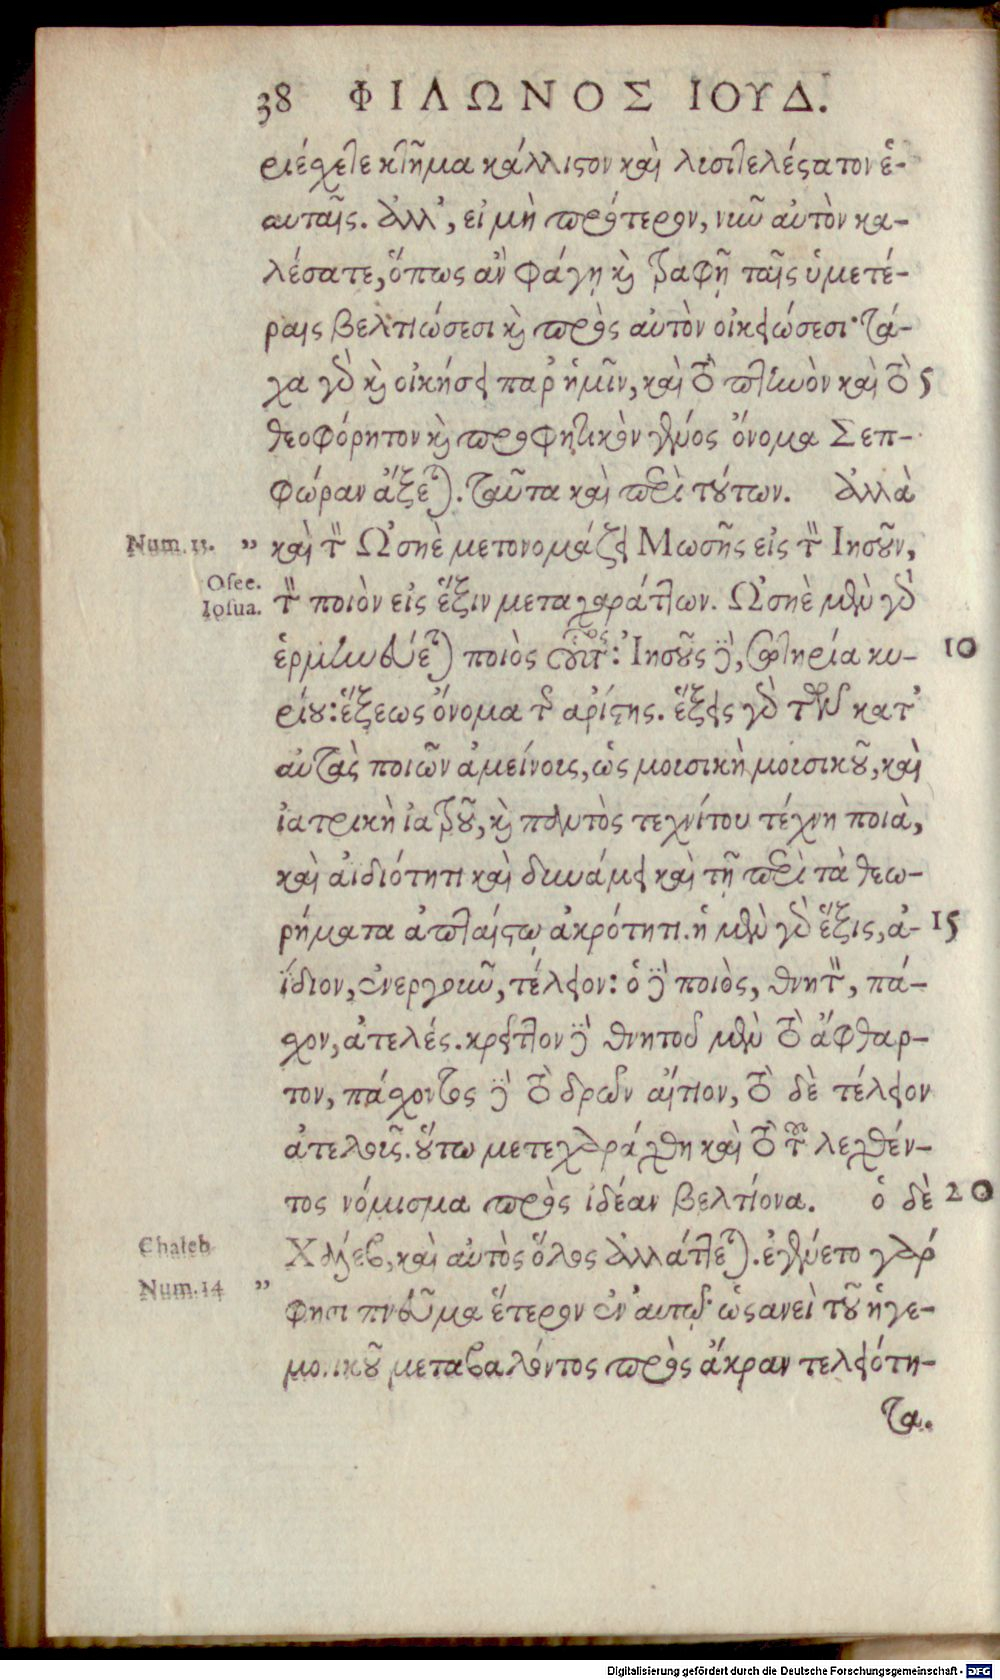 38 ΦΙΛΩΝΟΣ ΙΟΥΔ.
ριέχετε κτῆμα κάλλιστον καὶ λυσιτελέστατον ἑ-
αυταῖς. ἀλλ', εἰ μὴ πρότερον, νῦν αὐτὸν κα-
λέσατε, ὅπως ἂν φάγῃ καὶ τραφῇ ταῖς ὑμετέ-
ραις βελτιώσεσι καὶ πρὸς αὐτὸν οἰκειώσεσι· τά-
χα γὰρ καὶ οἰκήσει παρ' ἡμῖν, καὶ τὸ πτηνὸν καὶ τὸ 5
θεοφόρητον καὶ προφητικὸν γένος ὄνομα Σεπ-
φώραν ἄξεται. ταῦτα καὶ περὶ τούτων. ἀλλὰ
Num. 13. " καὶ τὸν Ὠσηὲ μετονομάζει Μωσῆς εἰς τὸν Ἰησοῦν,
Osee.
Iosua. τὸν ποιὸν εἰς ἕξιν μεταχαράττων. Ὠσηὲ μὲν γὰρ
ἑρμηνεύεται ποιὸς οὗτος: Ἰησοῦς δὲ, σωτηρία κυ- 10
ρίου: ἕξεως ὄνομα τῆς ἀρίστης. ἕξεις γὰρ τῶν κατ'
αὐτὰς ποιῶν ἀμείνους, ὡς μουσικὴ μουσικοῦ, καὶ
ἰατρικὴ ἰατροῦ, καὶ παντὸς τεχνίτου τέχνη ποιὰ,
καὶ ἀϊδιότητι καὶ δυνάμει καὶ τῇ περὶ τὰ θεω-
ρήματα ἀπταίστῳ ἀκρότητι. ἡ μὲν γὰρ ἕξις, ἀ- 15
ΐδιον, ἐνεργοῦν, τέλειον: ὁ δὲ ποιὸς, θνητὸν, πά-
σχον, ἀτελές. κρεῖττον δὲ θνητοῦ μὲν τὸ ἄφθαρ-
τον, πάσχοντος δὲ τὸ δρῶν αἴτιον, τὸ δὲ τέλειον
ἀτελοῦς. οὕτω μετεχαράχθη καὶ τὸ τοῦ λεχθέν-
τος νόμισμα πρὸς ἰδέαν βελτίονα. ὁ δὲ 20
Chaleb Χάλεβ, καὶ αὐτὸς ὅλος ἀλλάττεται. ἐγένετο γὰρ
Num. 14 " φησι πνεῦμα ἕτερον ἐν αὐτῷ· ὡσανεὶ τοῦ ἡγε-
μονικοῦ μεταβαλόντος πρὸς ἄκραν τελειότη-
τα.
Digitalisierung gefördert durch die Deutsche Forschungsgemeinschaft - DFG